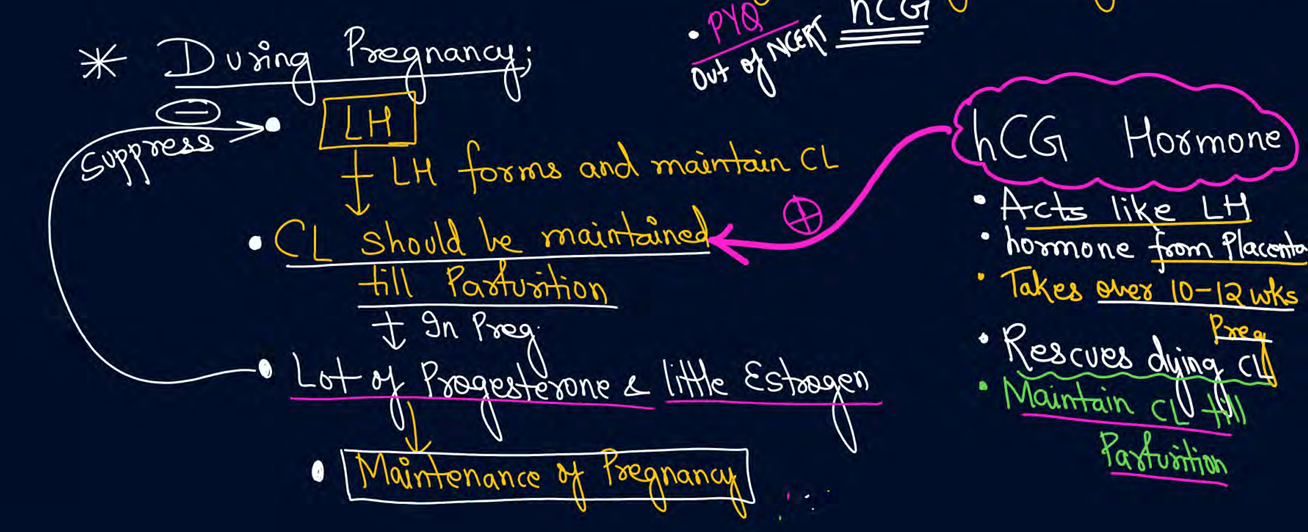 • PYQ
Out of NCERT hCG
* During Pregnancy;
suppress
LH
+ LH forms and maintain CL
• CL should be maintained
till Parturition
+ In Preg.
• Lot of Progesterone & little Estrogen
• Maintenance of Pregnancy
hCG Hormone
• Acts like LH
• hormone from Placenta
• Takes over 10-12 wks
Preg
• Rescues dying CL
• Maintain CL till
Parturition